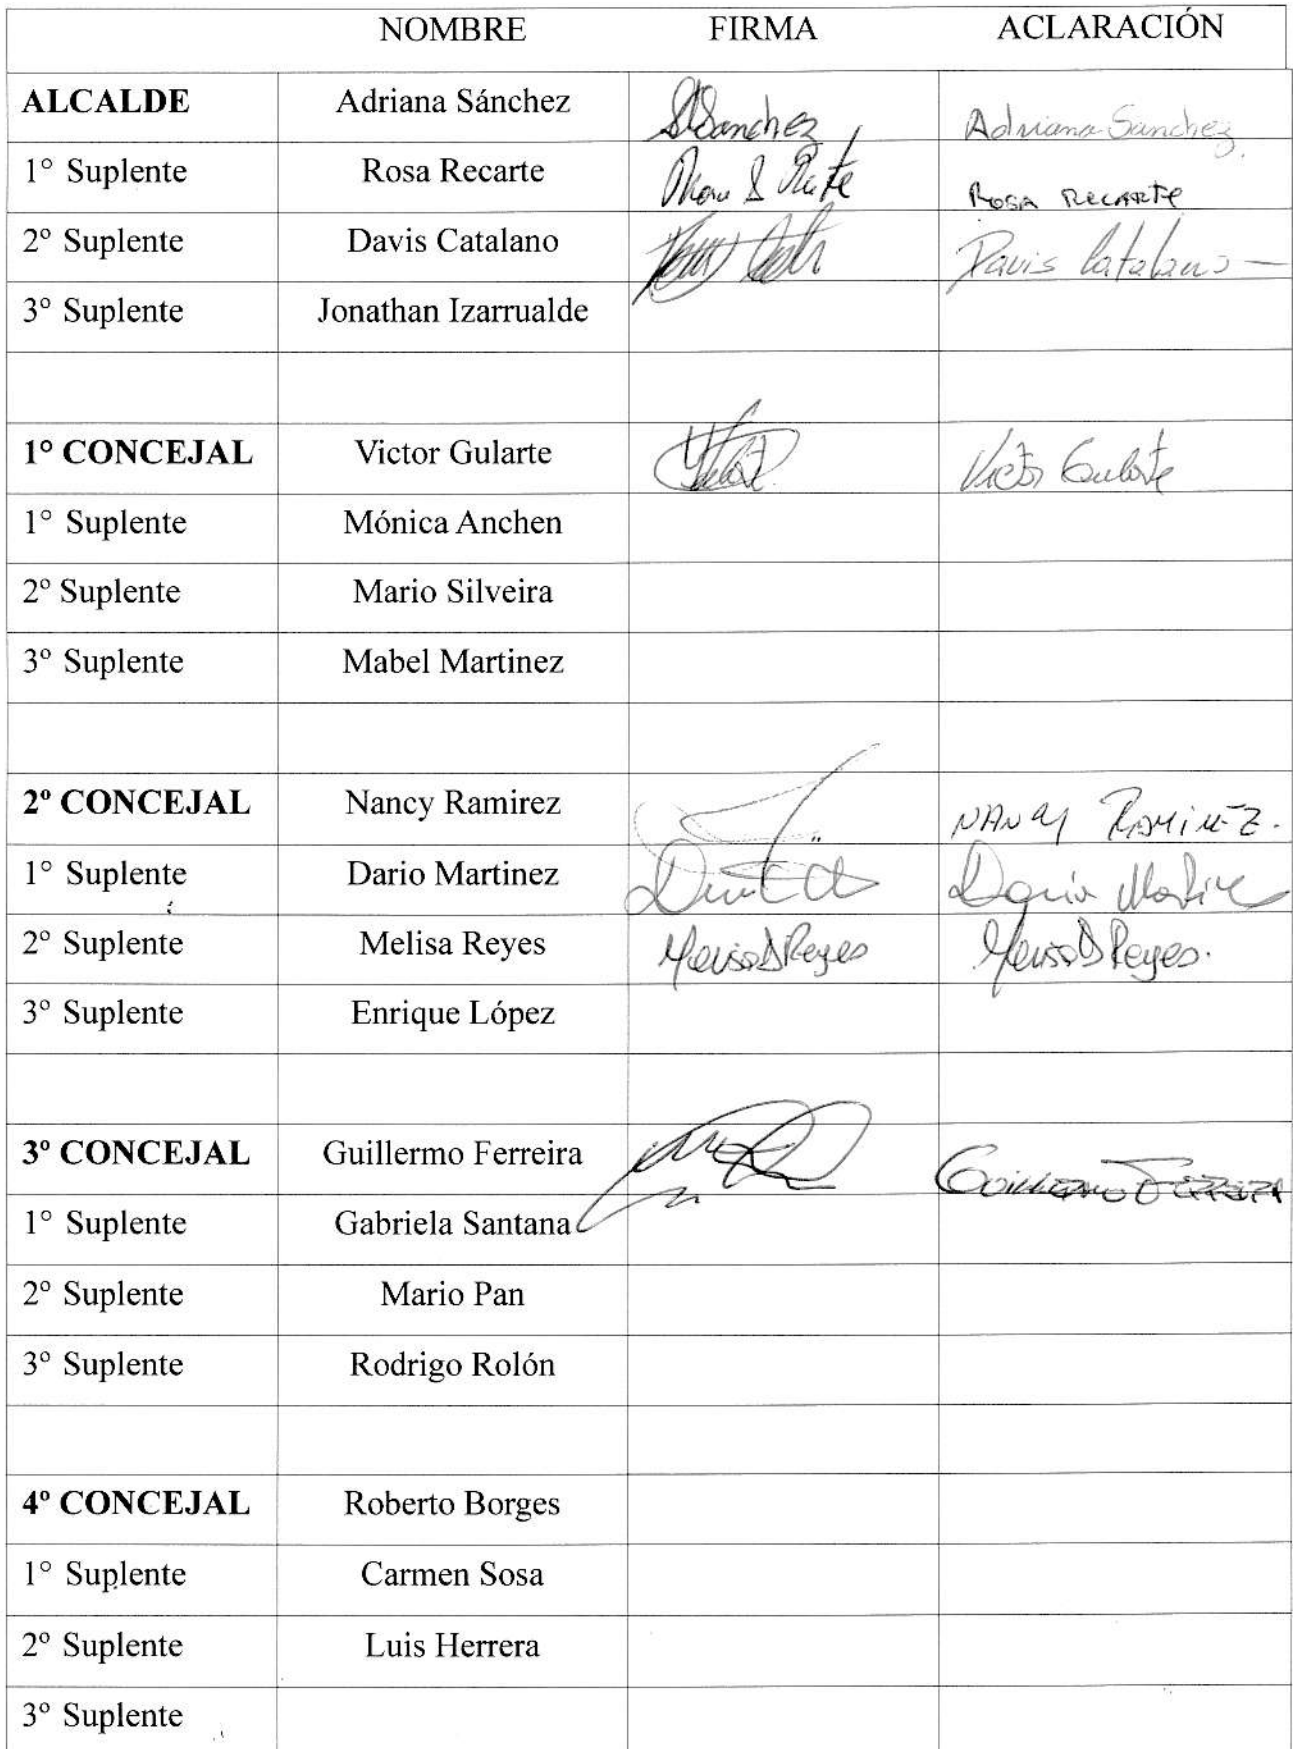 NOMBRE FIRMA ACLARACIÓN
ALCALDE Adriana Sánchez Sanchez Adriana Sanchez
1° Suplente Rosa Recarte ROSA RECARTE
2° Suplente Davis Catalano Davis Catalano
3° Suplente Jonathan Izarrualde
1° CONCEJAL Victor Gularte Victor Gularte
1° Suplente Mónica Anchen
2º Suplente Mario Silveira
3º Suplente Mabel Martinez
2º CONCEJAL Nancy Ramirez NANCY RAMIREZ.
1° Suplente Dario Martinez Dario
2º Suplente Melisa Reyes Reyes Reyes.
3º Suplente Enrique López
3º CONCEJAL Guillermo Ferreira GUILLERMO FERREIRA
1° Suplente Gabriela Santana
2º Suplente Mario Pan
3º Suplente Rodrigo Rolón
4º CONCEJAL Roberto Borges
1° Suplente Carmen Sosa
2º Suplente Luis Herrera
3º Suplente